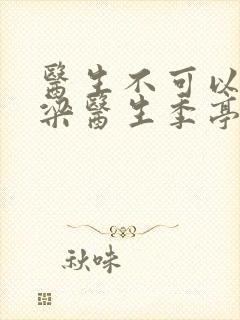 醫生不可以
梁醫生季亭
秋味